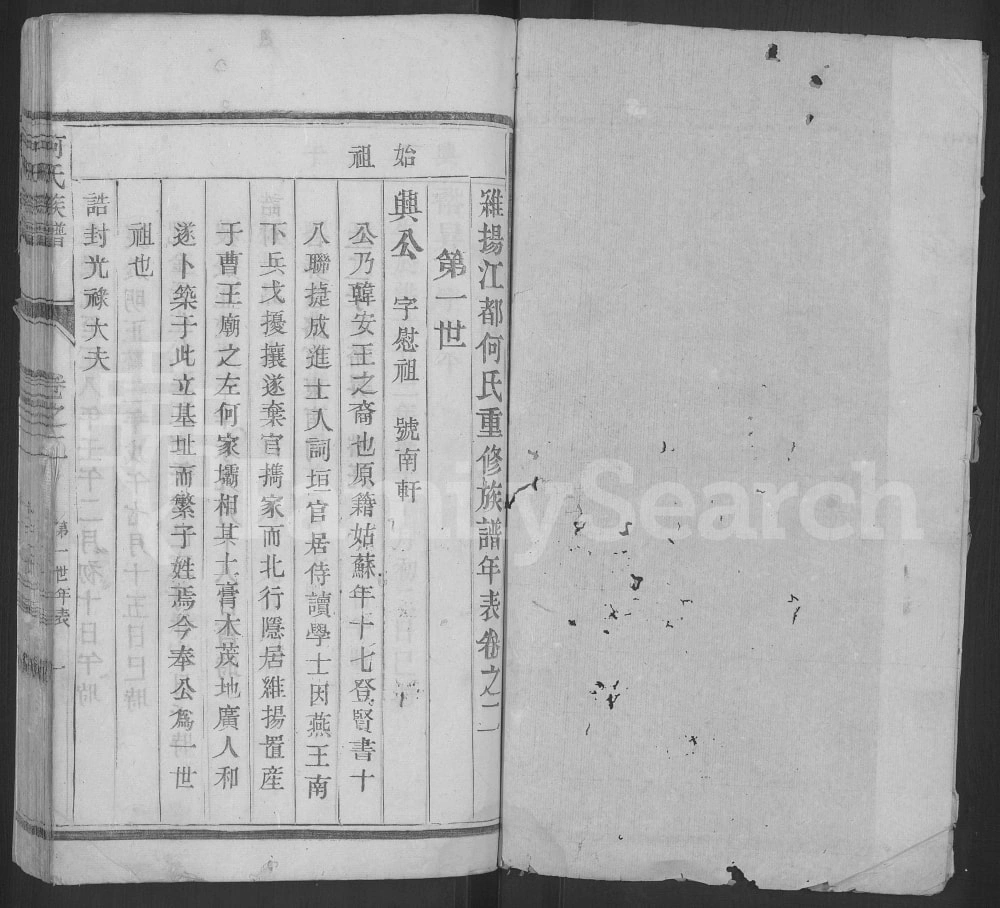 維揚江都何氏重修族譜年表卷之二
第一世
始祖
興公 字慰祖 號南軒
公乃韓安王之裔也原籍姑蘇年十七登賢書十
八聯捷成進士入詞垣官居侍讀學士因燕王南
下兵戈擾攘遂棄官攜家而北行隱居維揚置産
于曹王廟之左何家壩相其土膏木茂地廣人和
遂卜築于此立基址而繁子姓焉今奉公爲一世
祖也
誥封光祿大夫
何氏族譜 卷之二 第一世年表 一
FamilySearch